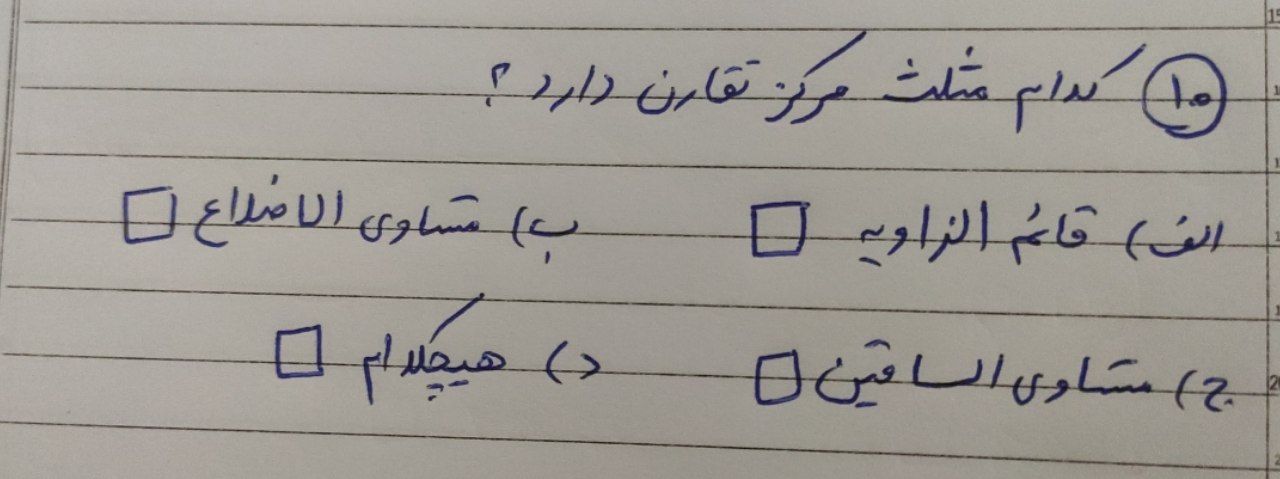 ۱۰ کدام مثلث مرکز تقارن دارد؟
الف) قائم الزاویه □ ب) متساوی الاضلاع □
ج) متساوی الساقین □ د) هیچکدام □